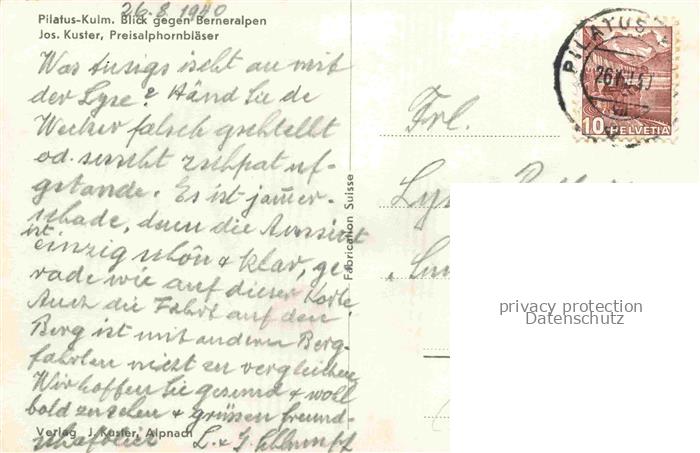 26.8.1940
Pilatus-Kulm. Blick gegen Berneralpen
Jos. Kuster, Preisalphornbläser
Was tusigs ischt au mit
der Lyse? Händ Sie de
Wecker falsch gschtellt
od. suscht z'schpat uf-
gstande. Es ist jammer-
schade, denn die Aussicht
ist einzig schön & klar, ge
rade wie auf dieser Karte.
Auch die Fahrt auf den
Berg ist mit andern Berg-
fahrten nicht zu vergleichen
Wir hoffen Sie gesund & wohl
bald zu sehen & grüssen freund-
schaftlich L. & G. Schlumpf
Verlag J. Kuster, Alpnach
Fabrication Suisse
PILATUS
10 HELVETIA
Frl.
privacy protection
Datenschutz